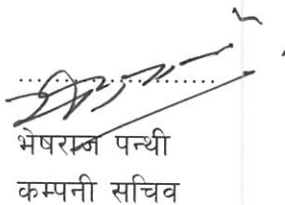 ....................
भेषराज पन्थी
कम्पनी सचिव